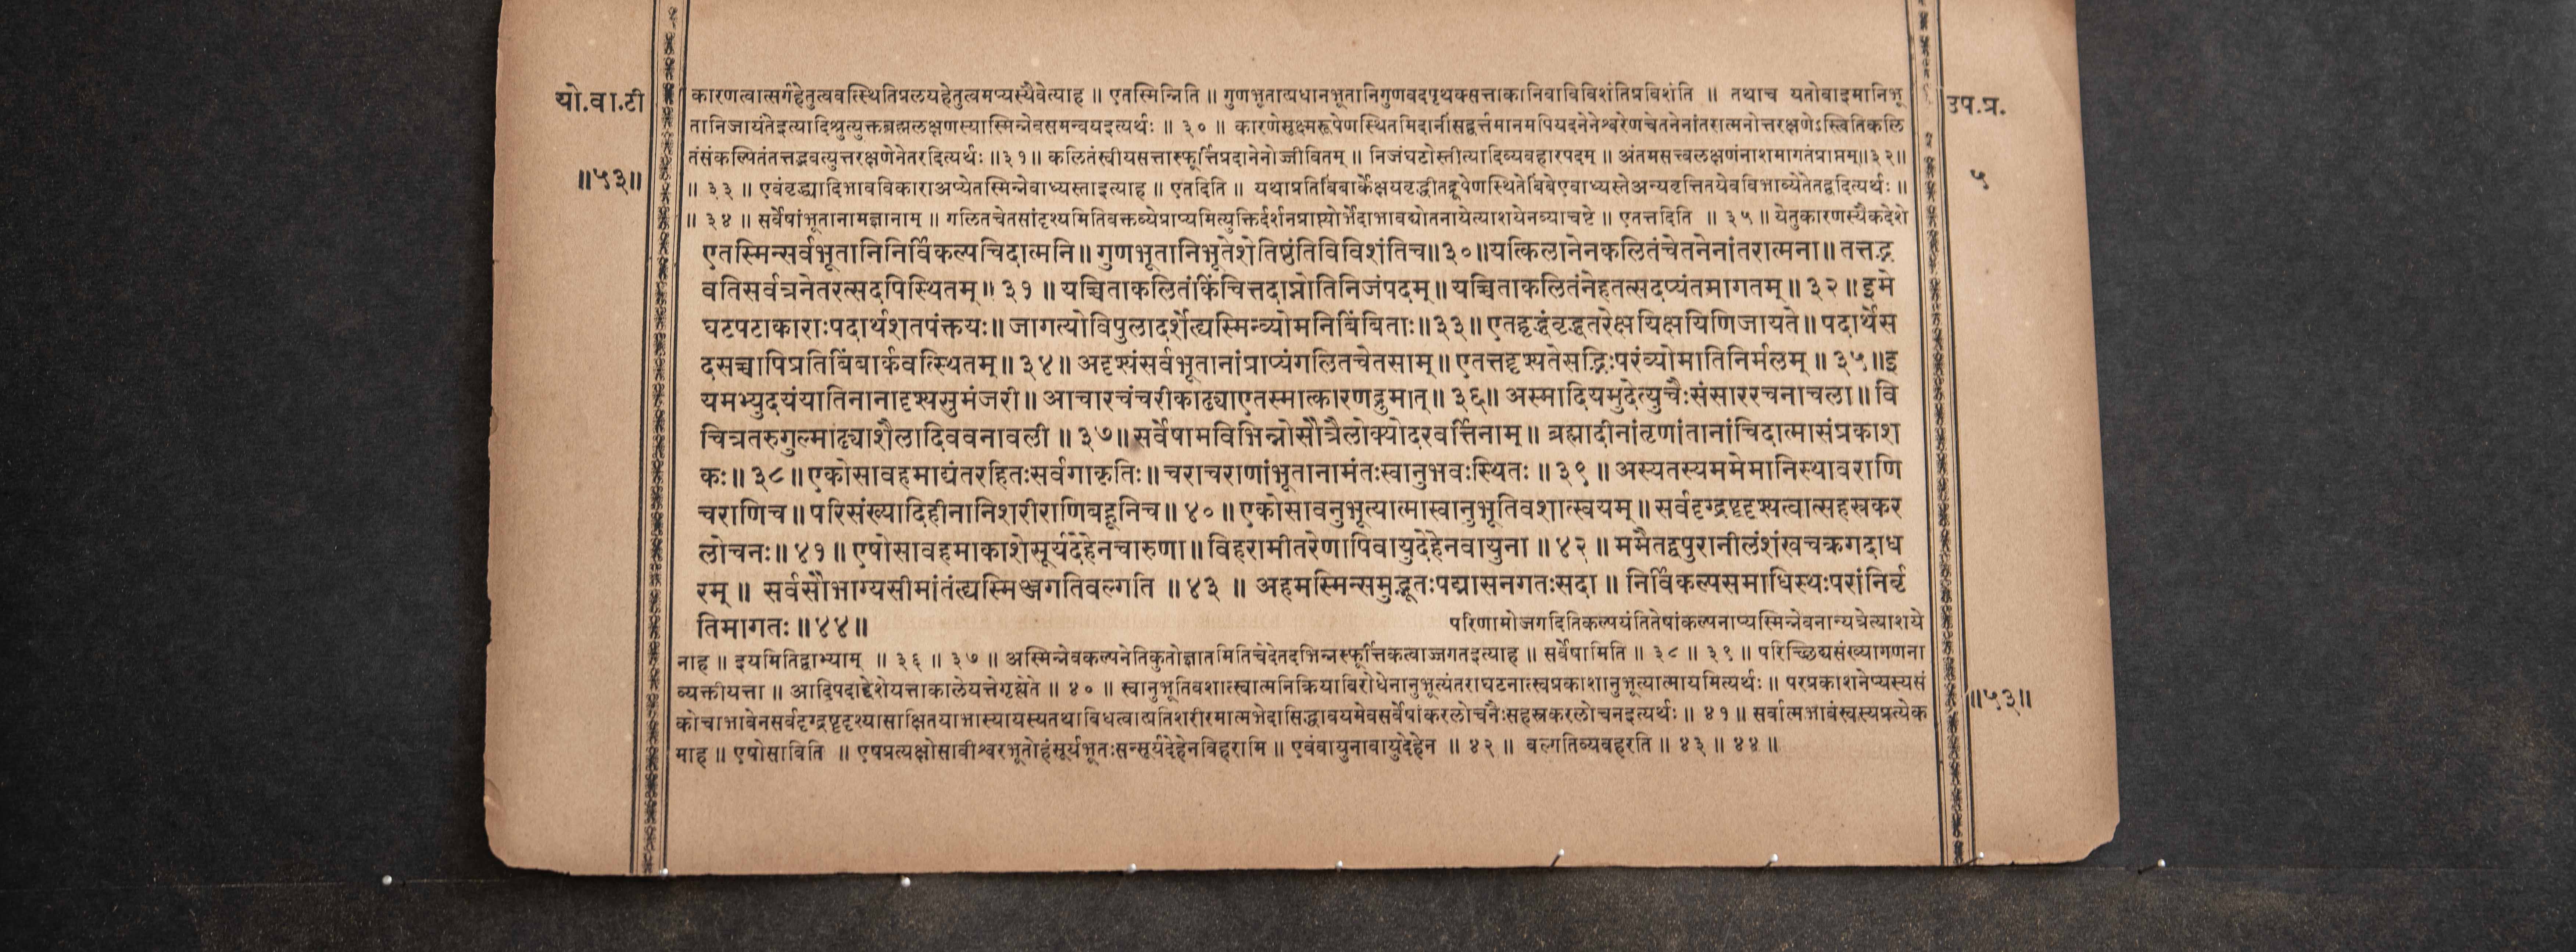 यो.वा.टी
॥५३॥
उप.प्र.
५
कारणत्वात्सर्गहेतुत्ववत्स्थितिप्रलयहेतुत्वमप्यस्यैवेत्याह ॥ एतस्मिन्निति ॥ गुणभूतात्प्रधानभूतानिगुणवदपृथक्सत्ताकानिवाविविशंतिप्रविशंति ॥ तथाच यतोवाइमानिभू
तानिजायंतेइत्यादिश्रुत्युक्तब्रह्मलक्षणस्यास्मिन्नेवसमन्वयइत्यर्थः ॥ ३० ॥ कारणेसूक्ष्मरूपेणस्थितमिदानींसद्वर्त्तमानमपियदनेनेश्वरेणचेतनेनांतरात्मनोत्तरक्षणेऽस्त्वितिकलि
तंसंकल्पितंतत्तद्भवत्युत्तरक्षणेनेतरदित्यर्थः ॥३१॥ कलितंस्वीयसत्तास्फूर्त्तिप्रदानेनोज्जीवितम् ॥ निजंघटोस्तीत्यादिव्यवहारपदम् ॥ अंतमसत्त्वलक्षणंनाशमागतंप्राप्तम्॥३२॥
॥ ३३ ॥ एवंवृद्ध्यादिभावविकाराअप्येतस्मिन्नेवाध्यस्ताइत्याह ॥ एतदिति ॥ यथाप्रतिबिंबार्केक्षयवृद्धीतद्रूपेणस्थितेबिंबेएवाध्यस्तेअन्यवृत्तितयेवविभाव्येतेतद्वदित्यर्थः ॥
॥ ३४ ॥ सर्वेषांभूतानामज्ञानाम् ॥ गलितचेतसांदृश्यमितिवक्तव्येप्राप्यमित्युक्तिर्दर्शनप्राप्त्योर्भेदाभावद्योतनायेत्याशयेनव्याचष्टे ॥ एतत्तदिति ॥ ३५ ॥ येतुकारणस्यैकदेशे
एतस्मिन्सर्वभूतानिनिर्विकल्पचिदात्मनि॥ गुणभूतानिभूतेशेतिष्ठंतिविविशंतिच॥३०॥यत्किलानेनकलितंचेतनेनांतरात्मना॥ तत्तद्भ
वतिसर्वत्रनेतरत्सदपिस्थितम्॥ ३१ ॥ यच्चिताकलितंकिंचित्तदाप्नोतिनिजंपदम्॥ यच्चिताकलितंनेहतत्सदप्यंतमागतम्॥ ३२॥ इमे
घटपटाकाराःपदार्थशतपंक्तयः॥ जागत्योविपुलादर्शेत्ध्यस्मिन्व्योमनिबिंबिताः॥३३॥ एतद्वृद्धंवृद्धतरेक्षयिक्षयिणिजायते॥ पदार्थेस
दसच्चापिप्रतिबिंबार्कवत्स्थितम्॥ ३४॥ अदृश्यंसर्वभूतानांप्राप्यंगलितचेतसाम्॥ एतत्तद्दृश्यतेसद्भिःपरंव्योमातिनिर्मलम् ॥ ३५॥इ
यमभ्युदयंयातिनानादृश्यसुमंजरी॥ आचारचंचरीकाढ्याएतस्मात्कारणद्रुमात्॥ ३६॥ अस्मादियमुदेत्युचैःसंसाररचनाचला॥ वि
चित्रतरुगुल्माढ्याशैलादिववनावली ॥ ३७॥ सर्वेषामविभिन्नोसौत्रैलोक्योदरवर्त्तिनाम्॥ ब्रह्मादीनांतृणांतानांचिदात्मासंप्रकाश
कः॥ ३८॥ एकोसावहमाद्यंतरहितःसर्वगाकृतिः॥ चराचराणांभूतानामंतःस्वानुभवःस्थितः ॥ ३९॥ अस्यतस्यममेमानिस्थावराणि
चराणिच॥ परिसंख्यादिहीनानिशरीराणिबहूनिच॥ ४०॥ एकोसावनुभूत्यात्मास्वानुभूतिवशात्स्वयम्॥ सर्वदृग्द्रष्टृदृश्यत्वात्सहस्रकर
लोचनः॥ ४१॥ एषोसावहमाकाशेसूर्यदेहेनचारुणा॥ विहरामीतरेणापिवायुदेहेनवायुना ॥ ४२॥ ममैतद्वपुरानीलंशंखचक्रगदाध
रम् ॥ सर्वसौभाग्यसीमांतंत्ध्यस्मिञ्जगतिवल्गति ॥ ४३ ॥ अहमस्मिन्समुद्भूतःपद्मासनगतःसदा ॥ निर्विकल्पसमाधिस्थःपरांनिर्वृ
तिमागतः ॥ ४४ ॥
परिणामोजगदितिकल्पयंतितेषांकल्पनाप्यस्मिन्नेवनान्यत्रेत्याशये
नाह ॥ इयमितिद्वाभ्याम् ॥ ३६ ॥ ३७ ॥ अस्मिन्नेवकल्पनेतिकुतोज्ञातमितिचेदेतदभिन्नस्फूर्त्तिकत्वाज्जगतइत्याह ॥ सर्वेषामिति ॥ ३८ ॥ ३९ ॥ परिच्छिद्यसंख्यागणना
व्यक्तीयत्ता ॥ आदिपदाद्देशेयत्ताकालेयत्तेगृह्येते ॥ ४० ॥ स्वानुभूतिवशात्स्वात्मनिक्रियाविरोधेनानुभूत्यंतराघटनात्स्वप्रकाशानुभूत्यात्मायमित्यर्थः ॥ परप्रकाशनेप्यस्यसं
कोचाभावेनसर्वदृग्द्रष्टृदृश्यासाक्षितयाभास्यायस्यतथाविधत्वात्प्रतिशरीरमात्मभेदासिद्धावयमेवसर्वेषांकरलोचनैःसहस्रकरलोचनइत्यर्थः ॥ ४१ ॥ सर्वात्मभावंस्वस्यप्रत्येक
माह ॥ एषोसाविति ॥ एषप्रत्यक्षोसावीश्वरभूतोहंसूर्यभूतःसन्सूर्यदेहेनविहरामि ॥ एवंवायुनावायुदेहेन ॥ ४२ ॥ वल्गतिव्यवहरति ॥ ४३ ॥ ४४ ॥
॥५३॥